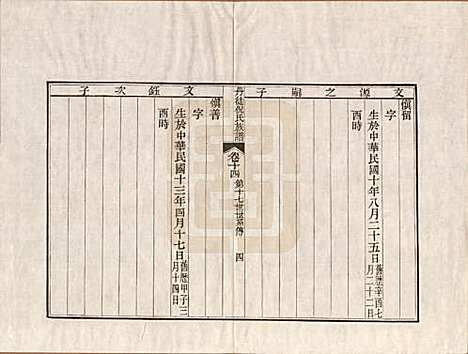 文源之嗣子
傎留
字
生於中華民國十年八月二十五日舊歷辛酉七月二十二日
酉時
丹徒倪氏族譜
卷十四
第十七世世系傳
四
文鈺次子
傎善
字
生於中華民國十三年四月十七日舊歷甲子三月十四日
酉時